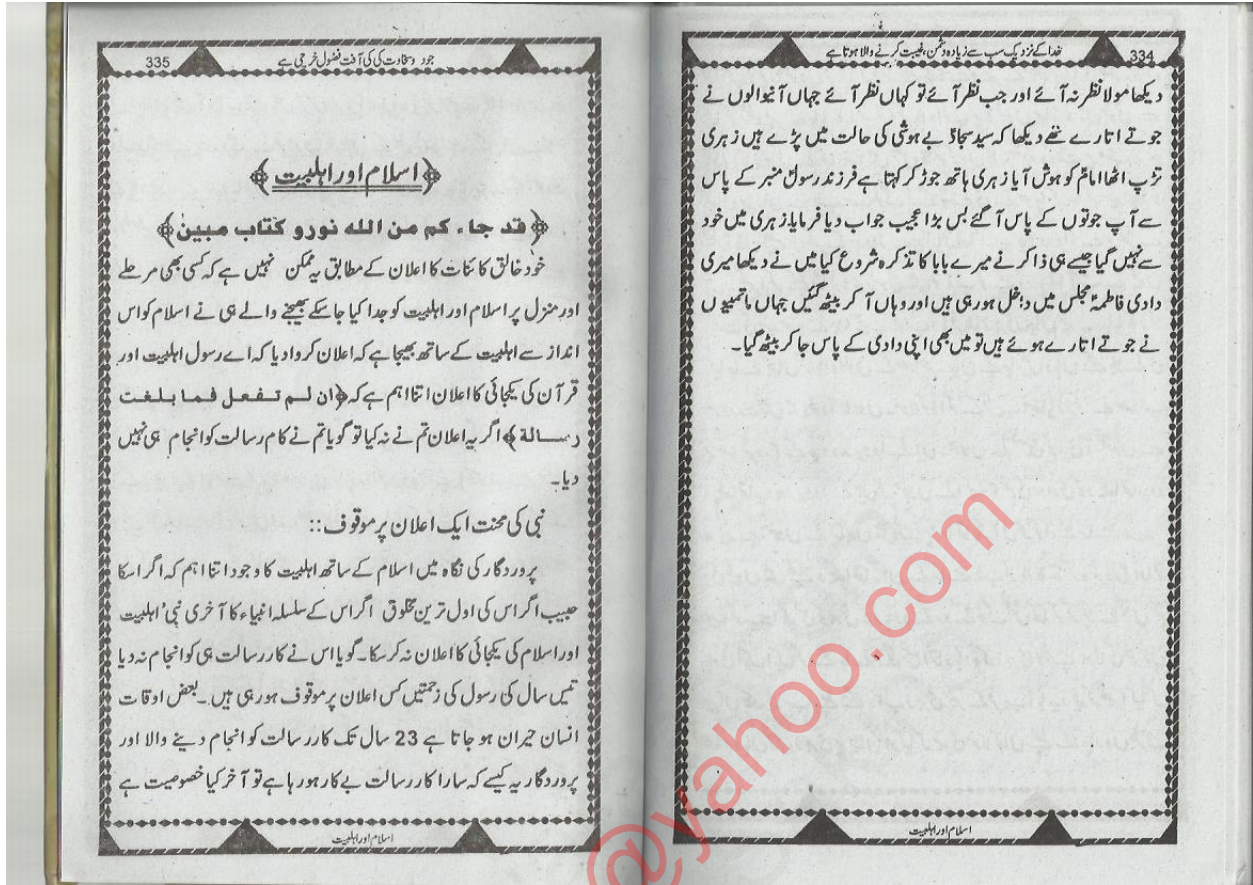 334
خدا کے نزدیک سب سے زیادہ دشمن، غیبت کرنے والا ہوتا ہے
دیکھا مولا نظر نہ آئے اور جب نظر آئے تو کہاں نظر آئے جہاں آنیوالوں نے
جوتے اتارے تھے دیکھا کہ سید سجادؑ بے ہوشی کی حالت میں پڑے ہیں زہری
تڑپ اٹھا امامؑ کو ہوش آیا زہری ہاتھ جوڑ کر کہتا ہے فرزند رسولؐ منبر کے پاس
سے آپ جوتوں کے پاس آگئے بس بڑا عجیب جواب دیا فرمایا زہری میں خود
سے نہیں گیا جیسے ہی ذاکر نے میرے بابا کا تذکرہ شروع کیا میں نے دیکھا میری
دادی فاطمہؑ مجلس میں داخل ہو رہی ہیں اور وہاں آ کر بیٹھ گئیں جہاں ماتمیوں
نے جوتے اتارے ہوئے ہیں تو میں بھی اپنی دادی کے پاس جا کر بیٹھ گیا۔
اسلام اور اہلبیت
335
جود و سخاوت کی کی آفت فضول خرچی ہے
﴿اسلام اور اہلبیت﴾
﴿قد جاء کم من الله نور و کتاب مبین﴾
خود خالق کائنات کا اعلان کے مطابق یہ ممکن نہیں ہے کہ کسی بھی مرحلے
اور منزل پر اسلام اور اہلبیت کو جدا کیا جا سکے بھیجنے والے ہی نے اسلام کو اس
انداز سے اہلبیت کے ساتھ بھیجا ہے کہ اعلان کروا دیا کہ اے رسول اہلبیت اور
قرآن کی یکجائی کا اعلان اتنا اہم ہے کہ ﴿ان لم تفعل فما بلغت
رسالة﴾ اگر یہ اعلان تم نے نہ کیا تو گویا تم نے کام رسالت کو انجام ہی نہیں
دیا۔
نبی کی محنت ایک اعلان پر موقوف::
پروردگار کی نگاہ میں اسلام کے ساتھ اہلبیت کا وجود اتنا اہم کہ اگر اسکا
حبیب اگر اس کی اول ترین مخلوق اگر اس کے سلسلہ انبیاء کا آخری نبیؐ اہلبیت
اور اسلام کی یکجائی کا اعلان نہ کر سکا۔ گویا اس نے کار رسالت ہی کو انجام نہ دیا
تیس سال کی رسول کی زحمتیں کس اعلان پر موقوف ہو رہی ہیں۔ بعض اوقات
انسان حیران ہو جاتا ہے 23 سال تک کار رسالت کو انجام دینے والا اور
پروردگار یہ کیسے کہ سارا کار رسالت بے کار ہو رہا ہے تو آخر کیا خصوصیت ہے
اسلام اور اہلبیت
@yahoo.com